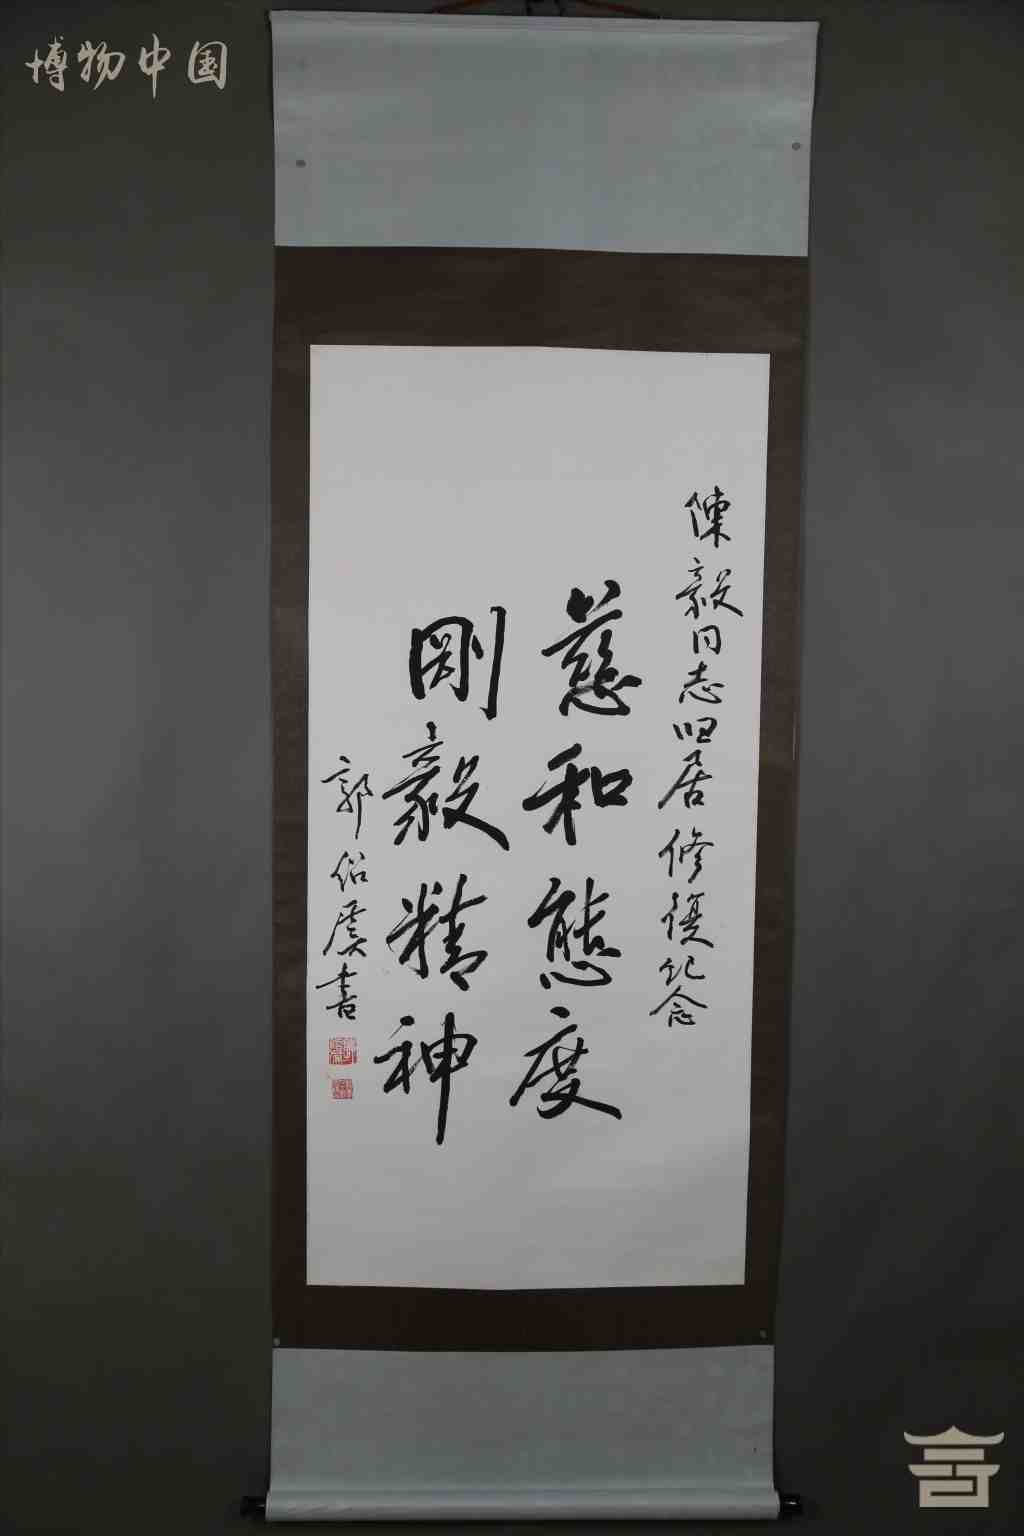 博物中国
陳毅同志旧居修復纪念
慈和態度
剛毅精神
郭绍虞書